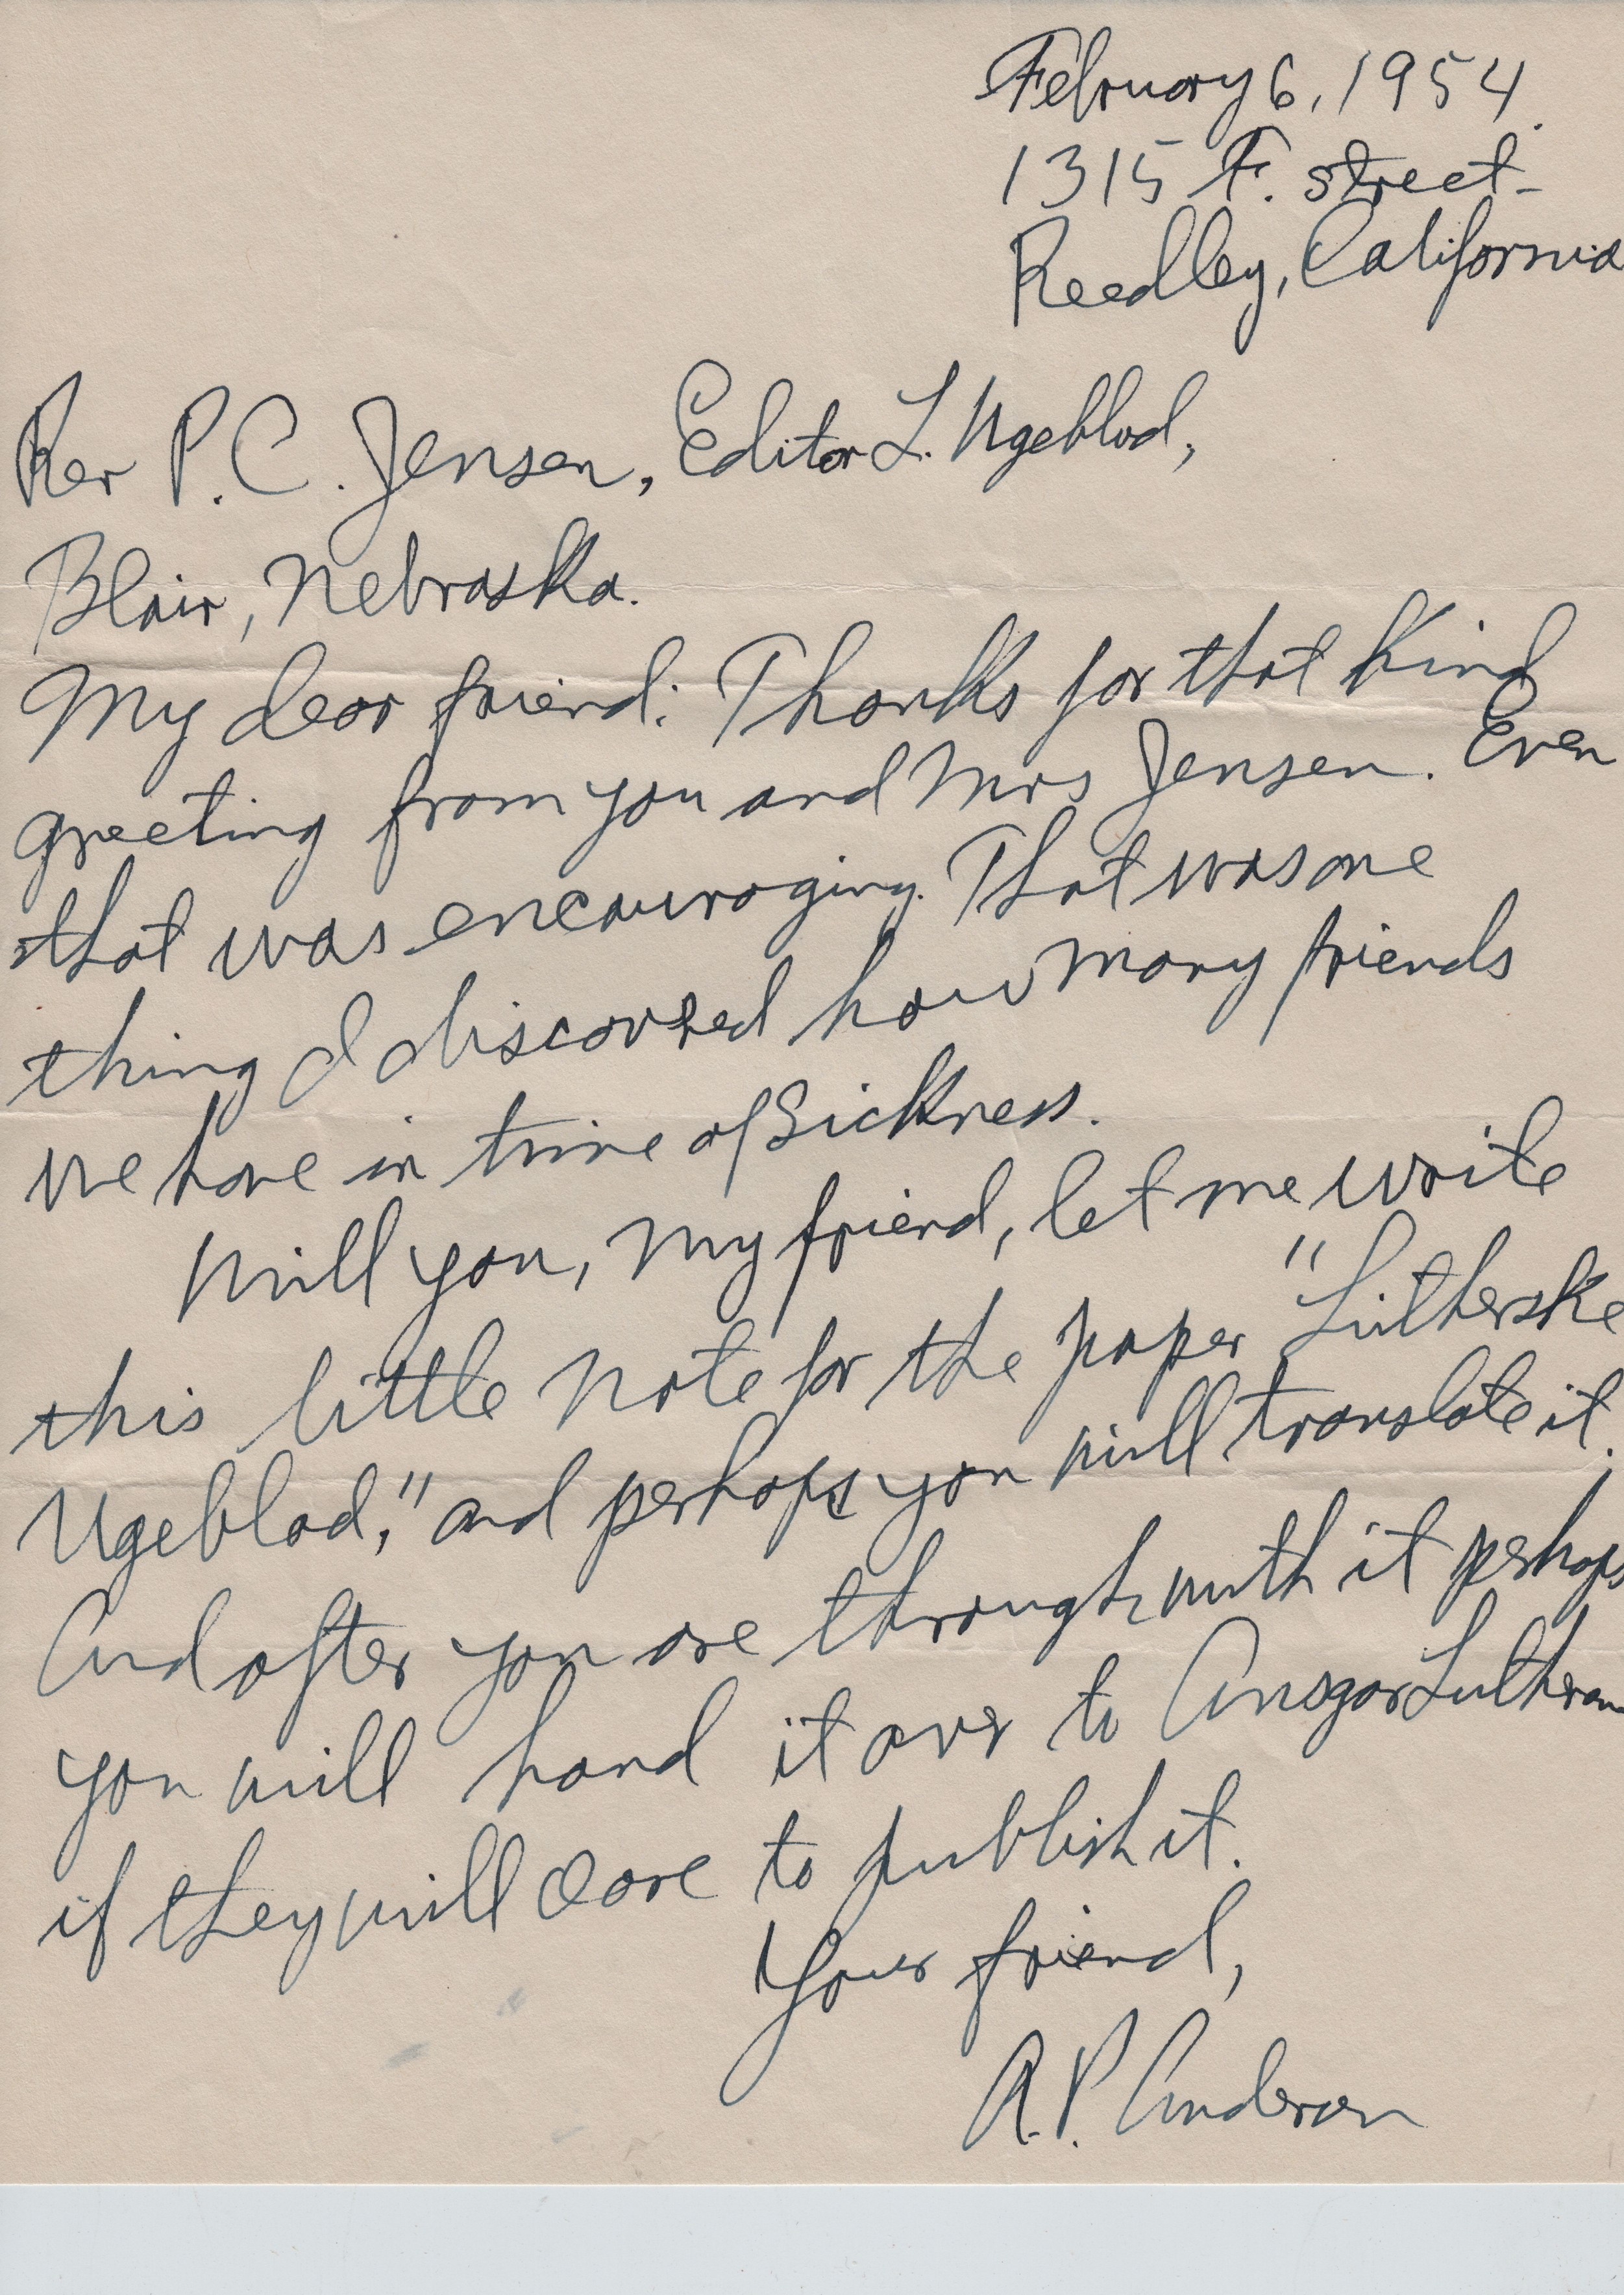 February 6, 1954.
1315 F. street-
Reedley, California
Rev P. C. Jensen, Editor L. Ugeblad,
Blair, Nebraska.
My dear friend: Thanks for that kind
greeting from you and Mrs Jensen. Even
that was encouraging. That was one
thing I discovred how many friends
we have in time of sickness.
Will you, my friend, let me write
this little note for the paper "Lutherske
Ugeblad," and perhaps you will translate it.
And after you are through with it perhaps
you will hand it over to Ansgar Lutheran
if they will care to publish it.
Your friend,
A. P. Andersen